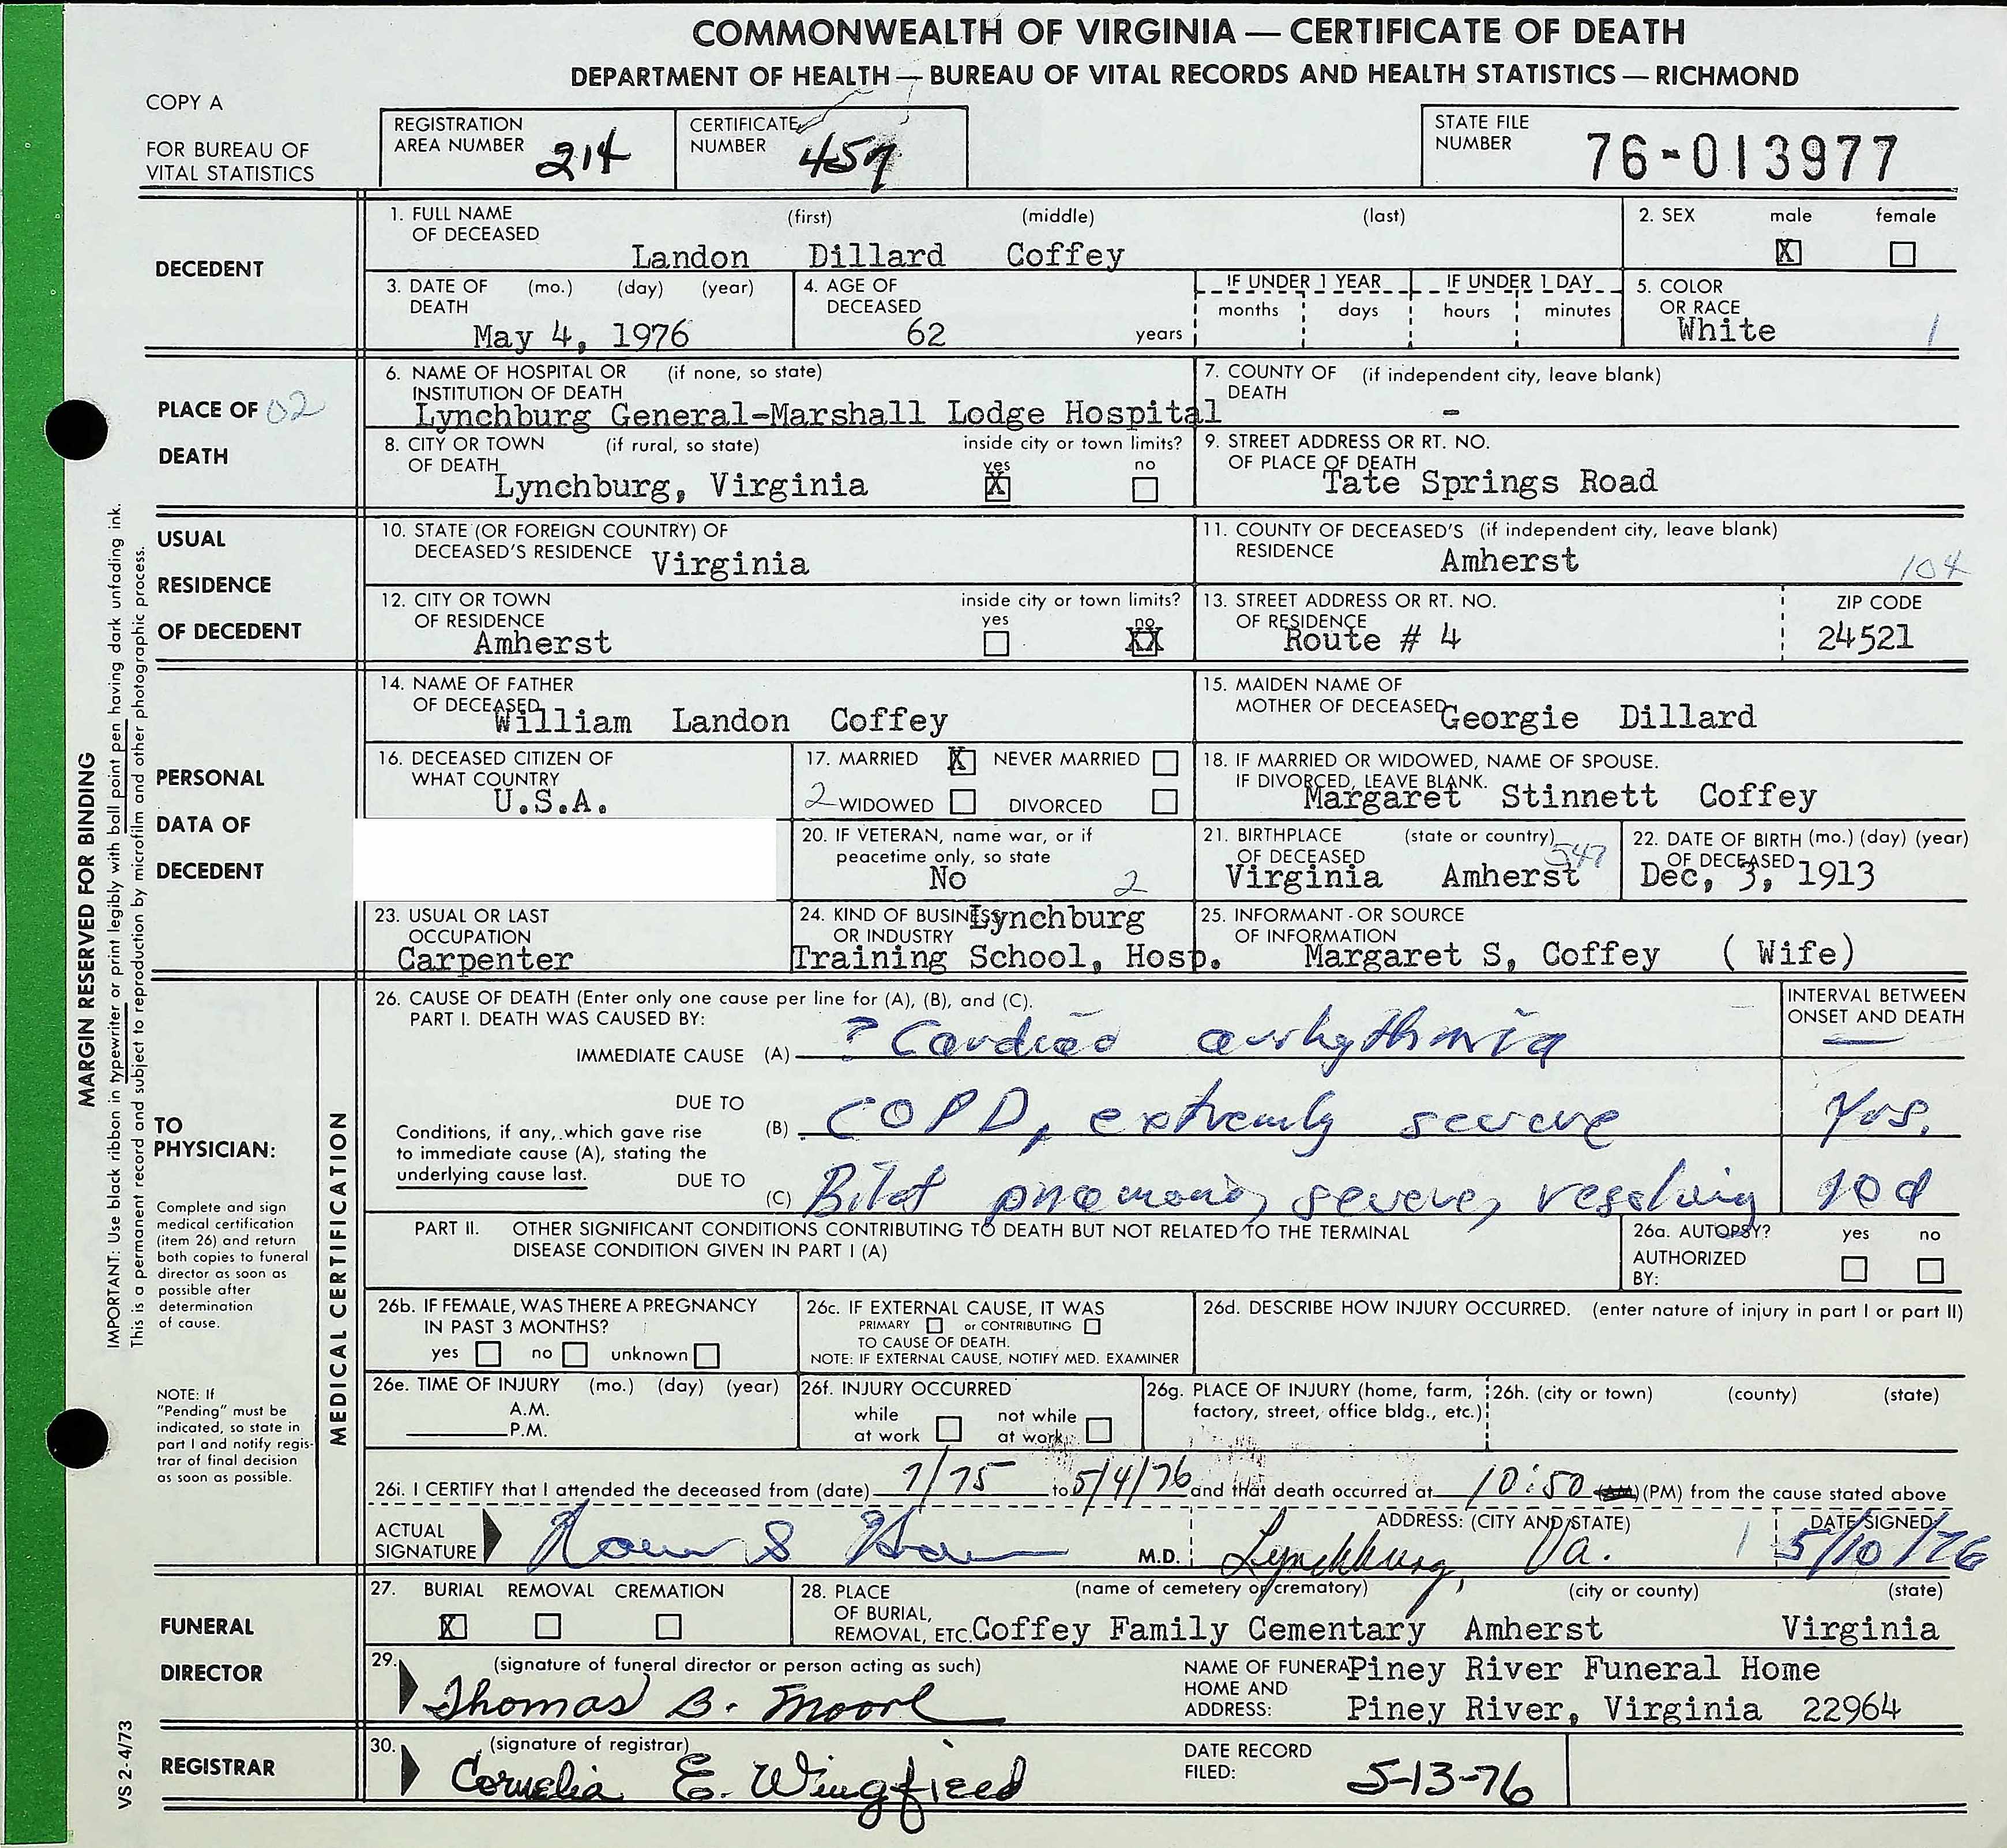 COMMONWEALTH OF VIRGINIA — CERTIFICATE OF DEATH
DEPARTMENT OF HEALTH — BUREAU OF VITAL RECORDS AND HEALTH STATISTICS — RICHMOND
COPY A
FOR BUREAU OF
VITAL STATISTICS
REGISTRATION
AREA NUMBER 214
CERTIFICATE
NUMBER 457
STATE FILE
NUMBER 76-013977
MARGIN RESERVED FOR BINDING
IMPORTANT: Use black ribbon in typewriter or print legibly with ball point pen having dark unfading ink.
This is a permanent record and subject to reproduction by microfilm and other photographic process.
VS 2-4/73
DECEDENT
1. FULL NAME (first) (middle) (last)
OF DECEASED
Landon Dillard Coffey
2. SEX male female
X
3. DATE OF (mo.) (day) (year)
DEATH
May 4, 1976
4. AGE OF
DECEASED
62 years
IF UNDER 1 YEAR IF UNDER 1 DAY
months days hours minutes
5. COLOR
OR RACE
White 1
PLACE OF 02
DEATH
6. NAME OF HOSPITAL OR (if none, so state)
INSTITUTION OF DEATH
Lynchburg General-Marshall Lodge Hospital
7. COUNTY OF (if independent city, leave blank)
DEATH
-
8. CITY OR TOWN (if rural, so state) inside city or town limits?
OF DEATH yes no
Lynchburg, Virginia X
9. STREET ADDRESS OR RT. NO.
OF PLACE OF DEATH
Tate Springs Road
USUAL
RESIDENCE
OF DECEDENT
10. STATE (OR FOREIGN COUNTRY) OF
DECEASED'S RESIDENCE Virginia
11. COUNTY OF DECEASED'S (if independent city, leave blank)
RESIDENCE Amherst 104
12. CITY OR TOWN inside city or town limits?
OF RESIDENCE yes no
Amherst XX
13. STREET ADDRESS OR RT. NO. ZIP CODE
OF RESIDENCE
Route # 4 24521
PERSONAL
DATA OF
DECEDENT
14. NAME OF FATHER
OF DECEASED
William Landon Coffey
15. MAIDEN NAME OF
MOTHER OF DECEASED Georgie Dillard
16. DECEASED CITIZEN OF
WHAT COUNTRY
U.S.A.
17. MARRIED X NEVER MARRIED
2 WIDOWED DIVORCED
18. IF MARRIED OR WIDOWED, NAME OF SPOUSE.
IF DIVORCED, LEAVE BLANK.
Margaret Stinnett Coffey
20. IF VETERAN, name war, or if
peacetime only, so state
No 2
21. BIRTHPLACE (state or country)
OF DECEASED 547
Virginia Amherst
22. DATE OF BIRTH (mo.) (day) (year)
OF DECEASED
Dec, 3, 1913
23. USUAL OR LAST
OCCUPATION
Carpenter
24. KIND OF BUSINESS Lynchburg
OR INDUSTRY
Training School, Hosp.
25. INFORMANT - OR SOURCE
OF INFORMATION
Margaret S, Coffey ( Wife)
TO
PHYSICIAN:
Complete and sign
medical certification
(item 26) and return
both copies to funeral
director as soon as
possible after
determination
of cause.
NOTE: If
"Pending" must be
indicated, so state in
part I and notify regis-
trar of final decision
as soon as possible.
MEDICAL CERTIFICATION
26. CAUSE OF DEATH (Enter only one cause per line for (A), (B), and (C).
PART I. DEATH WAS CAUSED BY:
INTERVAL BETWEEN
ONSET AND DEATH
IMMEDIATE CAUSE (A) ? Cardiac arrhythmia —
DUE TO
(B) COPD, extremly severe yrs.
Conditions, if any, which gave rise
to immediate cause (A), stating the
underlying cause last.
DUE TO
(C) Bilat pneumonia, severe, resolving 10 d
PART II. OTHER SIGNIFICANT CONDITIONS CONTRIBUTING TO DEATH BUT NOT RELATED TO THE TERMINAL
DISEASE CONDITION GIVEN IN PART I (A)
26a. AUTOPSY? yes no
AUTHORIZED
BY:
26b. IF FEMALE, WAS THERE A PREGNANCY
IN PAST 3 MONTHS?
yes no unknown
26c. IF EXTERNAL CAUSE, IT WAS
PRIMARY or CONTRIBUTING
TO CAUSE OF DEATH.
NOTE: IF EXTERNAL CAUSE, NOTIFY MED. EXAMINER
26d. DESCRIBE HOW INJURY OCCURRED. (enter nature of injury in part I or part II)
26e. TIME OF INJURY (mo.) (day) (year)
A.M.
P.M.
26f. INJURY OCCURRED
while not while
at work at work
26g. PLACE OF INJURY (home, farm,
factory, street, office bldg., etc.)
26h. (city or town) (county) (state)
26i. I CERTIFY that I attended the deceased from (date) 7/75 to 5/4/76 and that death occurred at 10:50 (AM) (PM) from the cause stated above
ACTUAL
SIGNATURE
M.D.
ADDRESS: (CITY AND STATE)
Lynchburg, Va. 1
DATE SIGNED
5/10/76
FUNERAL
DIRECTOR
27. BURIAL REMOVAL CREMATION
X
28. PLACE (name of cemetery or crematory) (city or county) (state)
OF BURIAL,
REMOVAL, ETC. Coffey Family Cementary Amherst Virginia
29. (signature of funeral director or person acting as such)
Thomas B. Moore
NAME OF FUNERAL Piney River Funeral Home
HOME AND
ADDRESS: Piney River, Virginia 22964
REGISTRAR
30. (signature of registrar)
Cornelia E. Wingfield
DATE RECORD
FILED: 5-13-76